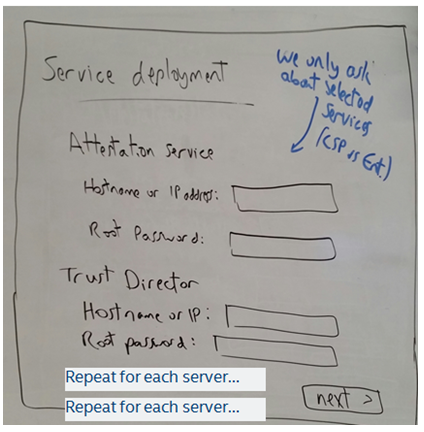 Service deployment
We only ask
about selected
services
(CSP vs Ent.)
Attestation service
Hostname or IP address:
Root Password:
Trust Director
Hostname or IP:
Root password:
Repeat for each server...
Repeat for each server...
next >